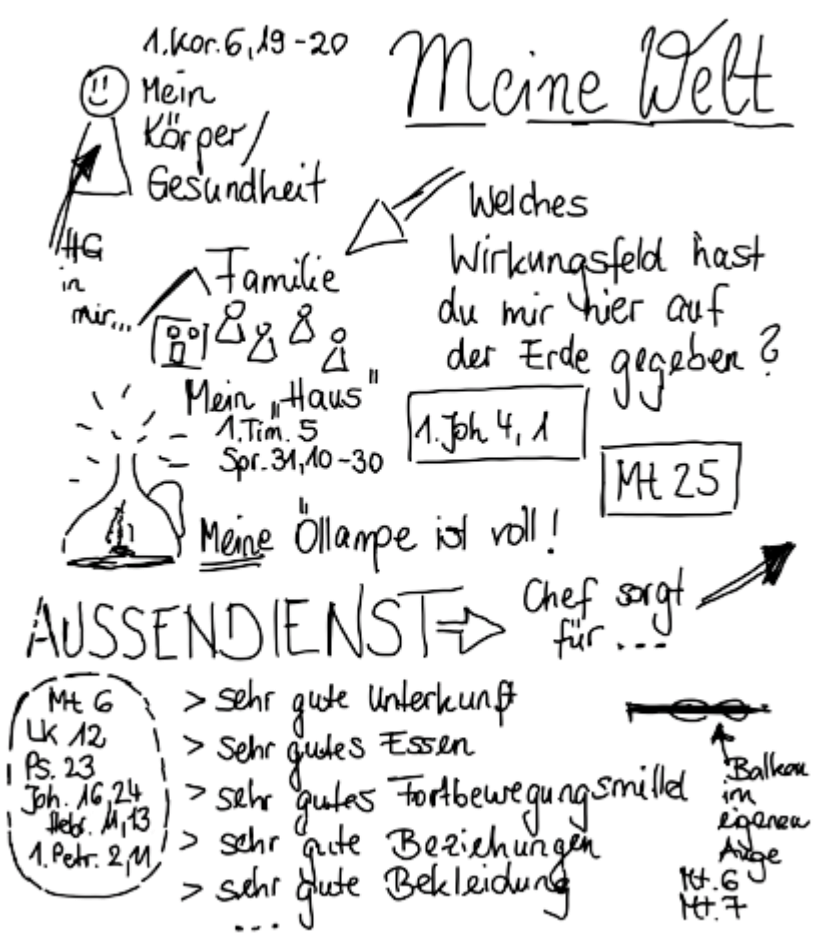 1.Kor.6,19-20
Mein
Körper/
Gesundheit
Meine Welt
HG
in
mir...
Familie
Welches
Wirkungsfeld hast
du mir hier auf
der Erde gegeben?
Mein „Haus"
1.Tim. 5
Spr. 31,10-30
1.Joh 4, 1
Mt 25
Meine Öllampe ist voll!
AUSSENDIENST
Chef sorgt
für ...
Mt 6
LK 12
Ps. 23
Joh. 16,24
Hebr. 11,13
1. Petr. 2,11
> sehr gute Unterkunft
> sehr gutes Essen
> sehr gutes Fortbewegungsmittel
> sehr gute Beziehungen
> sehr gute Bekleidung
...
Balken
im
eigenen
Auge
Mt. 6
Mt. 7